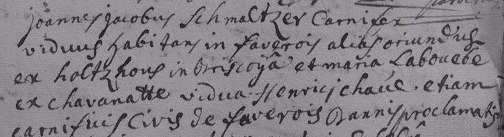 joannes jacobus Schmaltzer Carnifex
viduus habitans in faverois alias oriundus
ex holtzhous in Briscoya et maria Labouebe
ex chavanatte vidua Henrici chave etiam
carnificis Civis de faverois Bannis proclamati